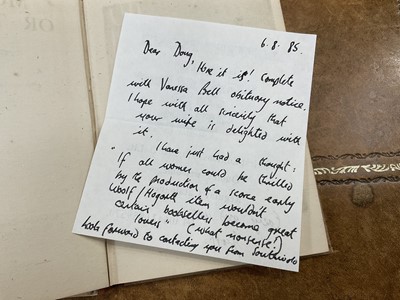 6.8.85.
Dear Doug,
Here it is! Complete
with Vanessa Bell obituary notice.
I hope with all sincerity that
your wife is delighted with
it.
I have just had a thought:
"If all women could be thrilled
by the production of a scarce early
Woolf/Hogarth item wouldn't
certain booksellers become great
lovers" (what nonsense!)
Look forward to contacting you from Southwold